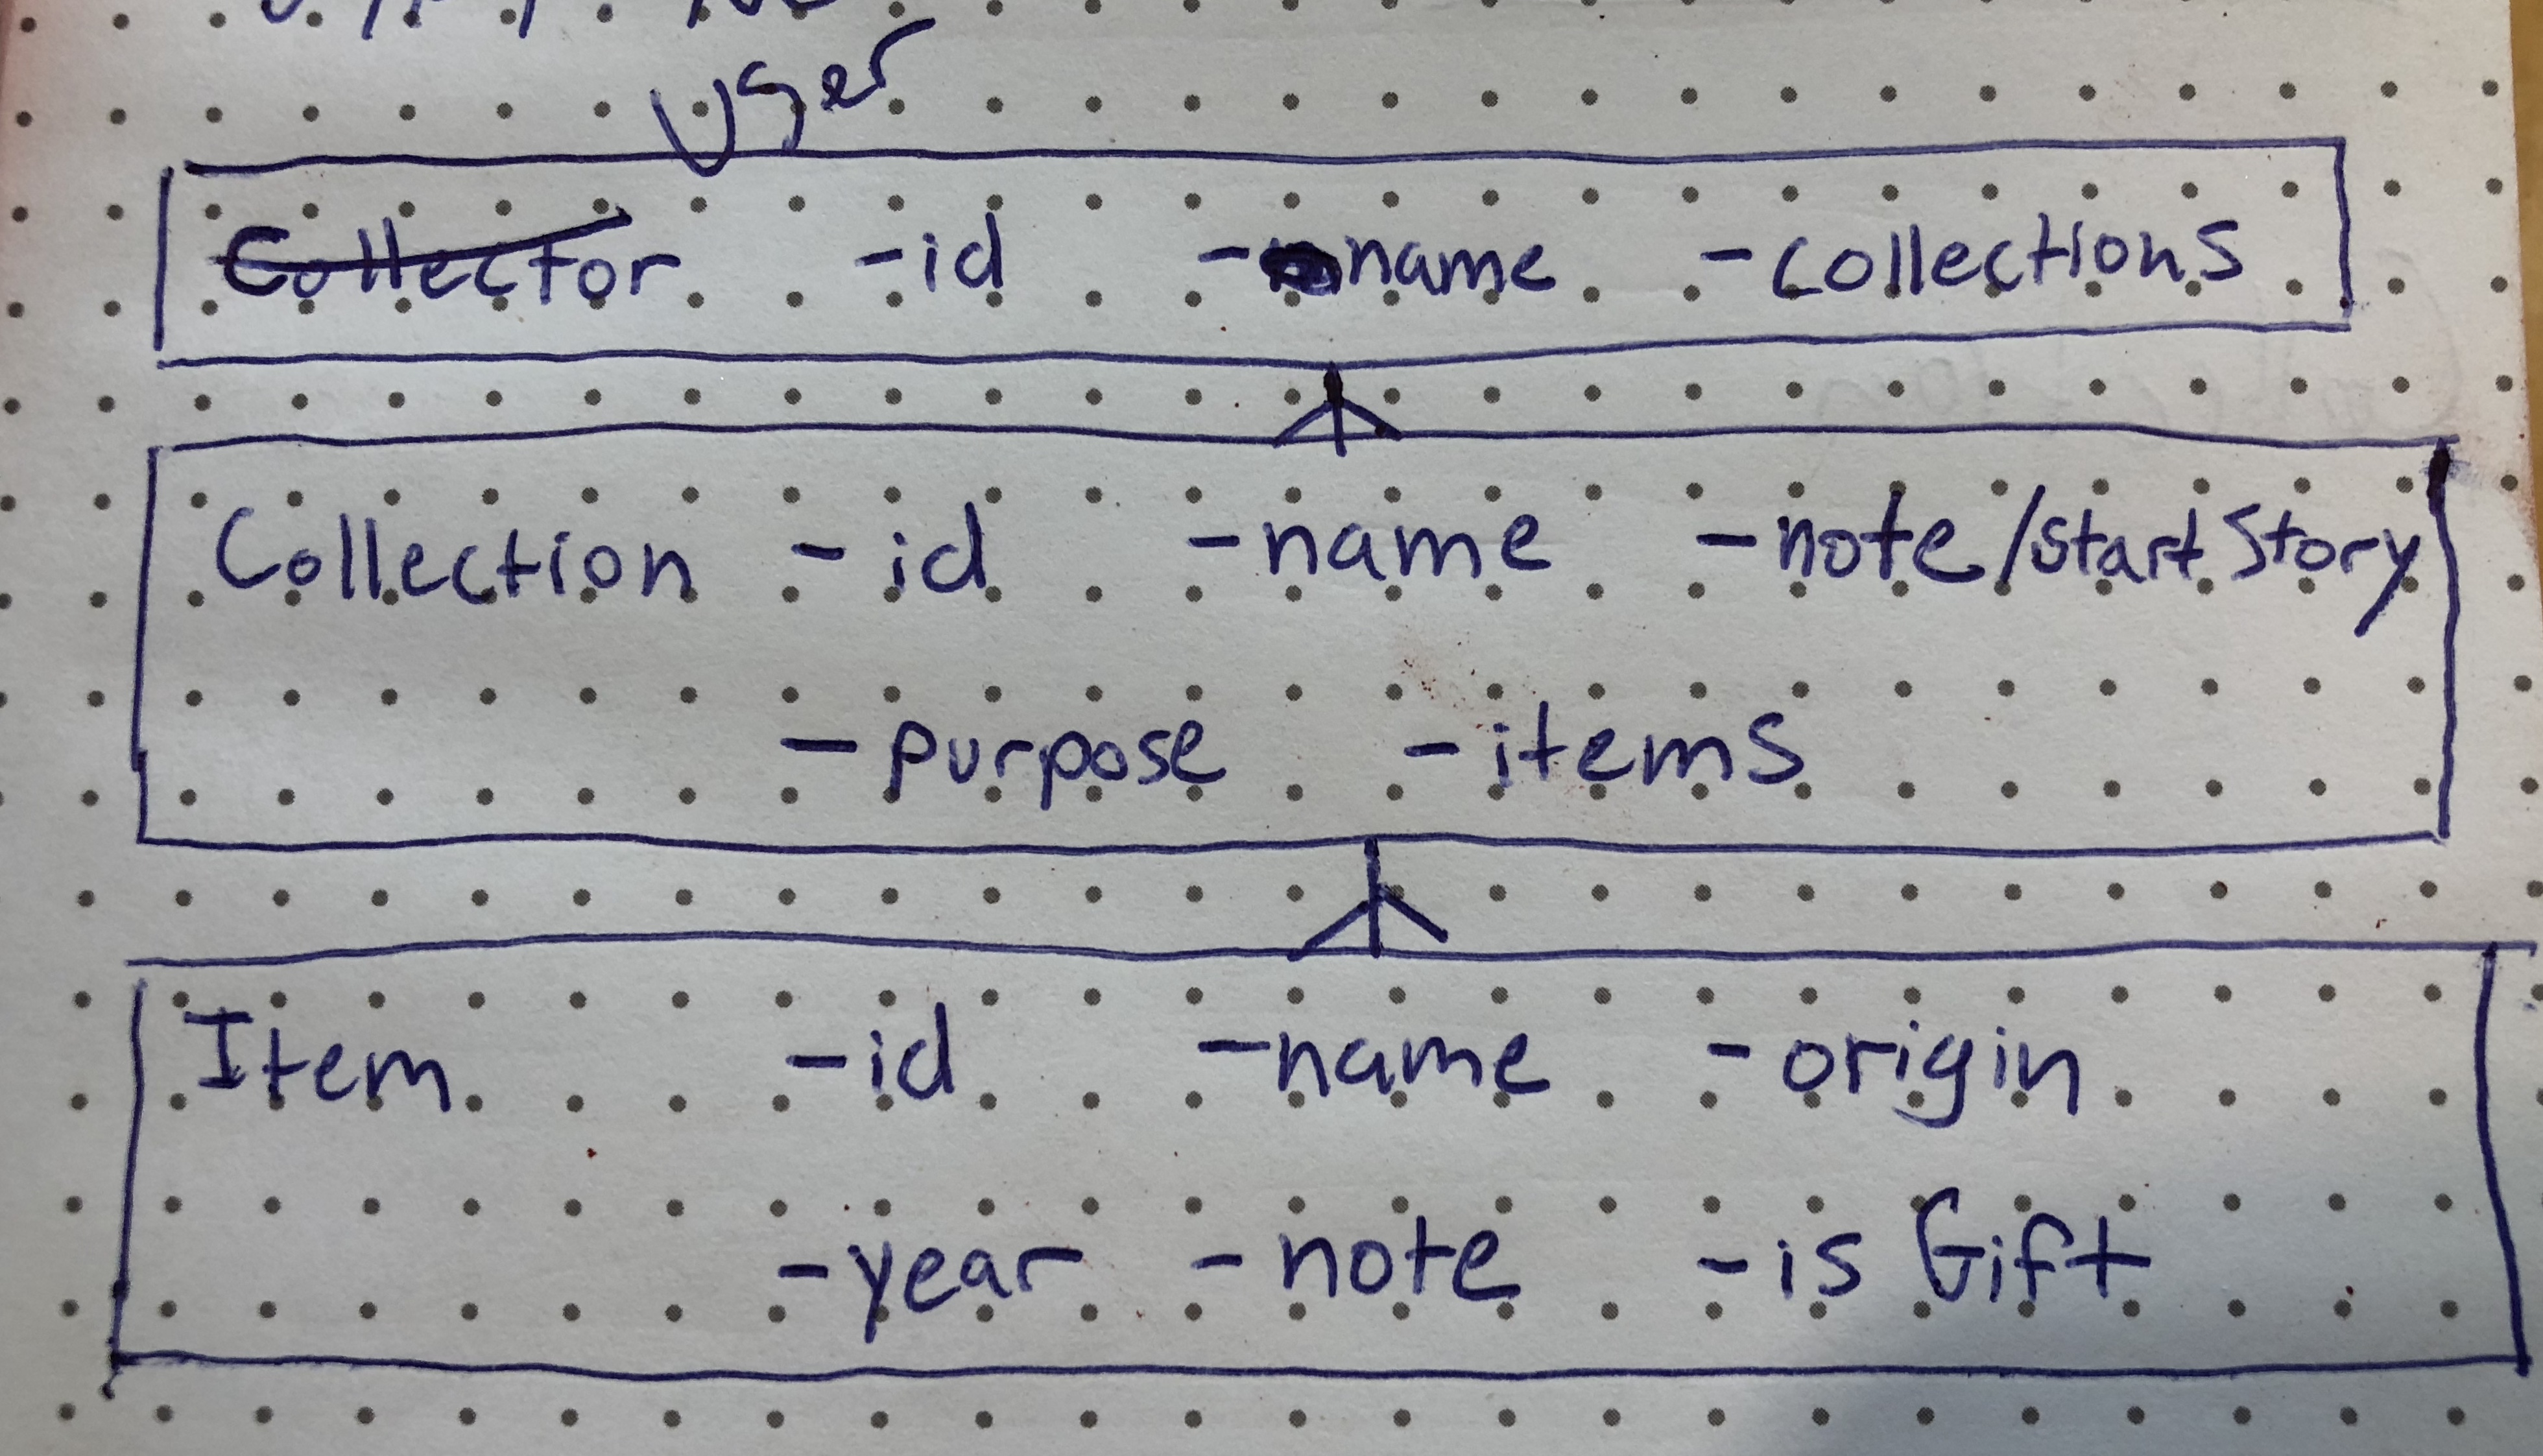 User
Collector -id -name -collections
Collection -id -name -note/startStory
-purpose -items
Item -id -name -origin
-year -note -is Gift